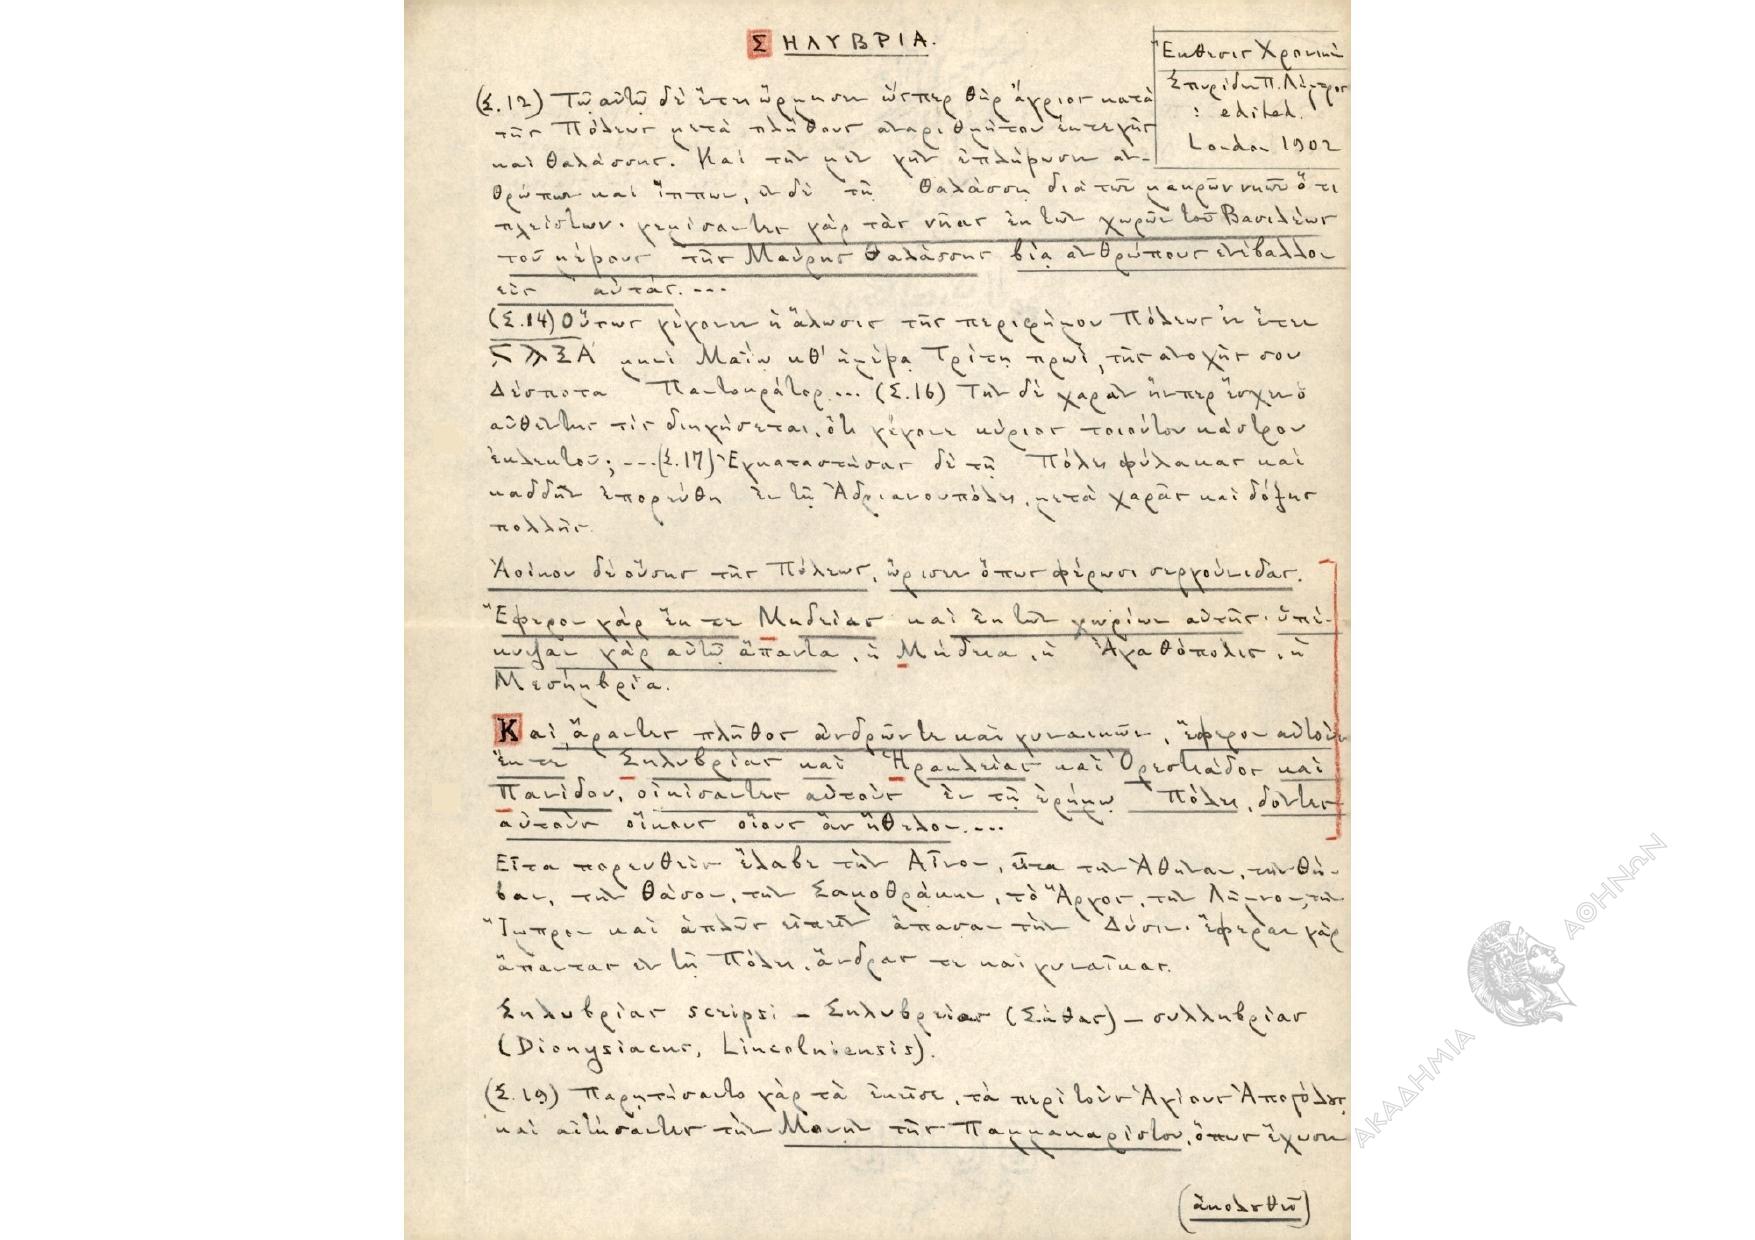 ΣΗΛΥΒΡΙΑ.
Ἔκθεσις Χρονική
Σπυρίδων Π. Λάμπρος
: edited.
London 1902
(Σ.12) Τῷ αὐτῷ δὲ ἔτει ὥρμησεν ὥσπερ θὴρ ἄγριος κατὰ
τῆς Πόλεως μετὰ πλήθους ἀναριθμήτου ἔκ τε γῆς
καὶ θαλάσσης. Καὶ τὴν μὲν γῆν ἐπλήρωσεν ἀν-
θρώπων καὶ ἵππων, ἐν δὲ τῇ θαλάσσῃ διὰ τῶν μακρῶν νηῶν ὅτι
πλείστων. γεμίσαντες γὰρ τὰς νῆας ἐκ τῶν χωρῶν τοῦ Βασιλέως
τοῦ μέρους τῆς Μαύρης Θαλάσσης βίᾳ ἀνθρώπους ἐνέβαλλον
εἰς αὐτάς....
(Σ.14) Οὕτως γέγονεν ἡ ἅλωσις τῆς περιφήμου Πόλεως ἐν ἔτει
ϚϠΞΑ μηνὶ Μαΐῳ κθ' ἡμέρᾳ Τρίτῃ πρωΐ, τῆς ἀνοχῆς σου
Δέσποτα Παντοκράτορ... (Σ.16) Τὴν δὲ χαρὰν ἥνπερ ἔσχεν ὁ
αὐθέντης τίς διηγήσεται, ὅτι γέγονε κύριος τοιούτου κάστρου
ἐκλεκτοῦ; ---(Σ.17) Ἐγκαταστήσας δὲ τῇ Πόλει φύλακας καὶ
καδδῆν ἐπορεύθη ἐν τῇ Ἀδριανουπόλει, μετὰ χαρᾶς καὶ δόξης
πολλῆς.
Ἀοίκου δὲ οὔσης τῆς Πόλεως, ὥρισεν ὅπως φέρωσι σεργούνιδας.
Ἔφερον γὰρ ἔκ τε Μηδείας καὶ ἐκ τῶν χωρίων αὐτῆς. ὑπέ-
κυψαν γὰρ αὐτῷ ἅπαντα, ἡ Μήδεια, ἡ Ἀγαθόπολις, ἡ
Μεσημβρία.
Καὶ ἄραντες πλῆθος ἀνδρῶν τε καὶ γυναικῶν, ἔφερον αὐτοὺς
ἔκ τε Σηλυβρίας καὶ Ἡρακλείας καὶ Ὀρεστιάδος καὶ
Πανίδου, οἰκίσαντες αὐτοὺς ἐν τῇ ἐρήμῳ Πόλει, δόντες
αὐτοὺς οἴκους οἵους ἂν ἤθελον....
Εἶτα πορευθεὶς ἔλαβε τὴν Αἶνον, εἶτα τὴν Ἀθήναν, τὴν Θή-
βαν, τὴν Θάσον, τὴν Σαμοθράκην, τὸ Ἄργος, τὴν Λῆμνον, τὴν
Ἴμπρον καὶ ἁπλῶς εἰπεῖν ἅπασαν τὴν Δύσιν. ἔφεραν γὰρ
ἅπαντας ἐν τῇ Πόλει, ἄνδρας τε καὶ γυναῖκας.
Σηλυβρίας scripsi - Σηλυβρείας (Σάθας) - συλληβρίας
(Dionysiacus, Lincolniensis).
(Σ.19) Παρῃτήσαντο γὰρ τὰ ἐκεῖσε, τὰ περὶ τοὺς Ἁγίους Ἀποστόλους
καὶ αἰτήσαντες τὴν Μονὴν τῆς Παμμακαρίστου, ὅπως ἔχωσιν
(ἀκολουθεῖ)
ΑΚΑΔΗΜΙΑ ΑΘΗΝΩΝ